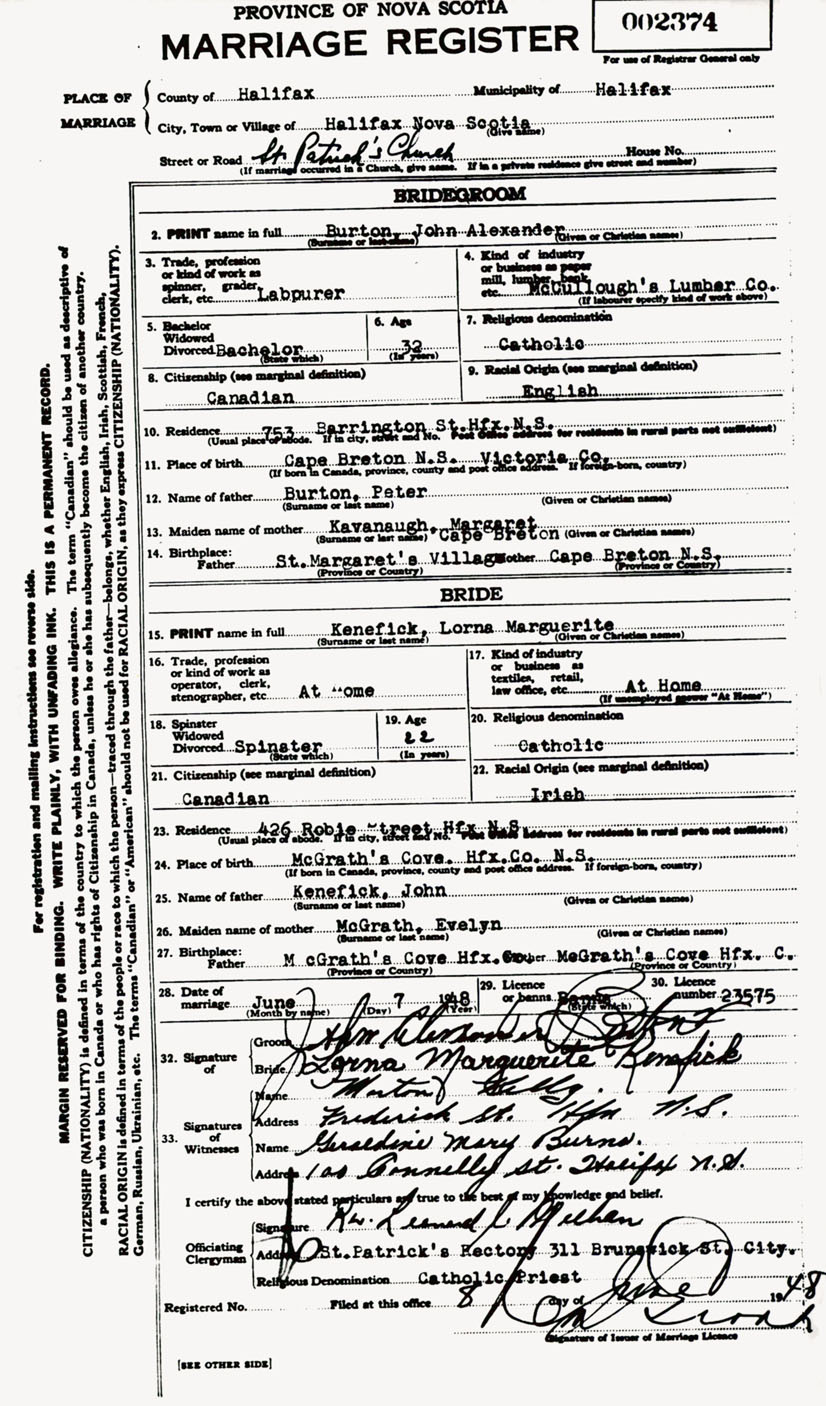 PROVINCE OF NOVA SCOTIA
MARRIAGE REGISTER
002374
For use of Registrar General only
PLACE OF MARRIAGE
County of Halifax Municipality of Halifax
City, Town or Village of Halifax Nova Scotia
(Give name)
Street or Road St. Patrick's Church House No.
(If marriage occurred in a Church, give name. If in a private residence give street and number)
BRIDEGROOM
2. PRINT name in full Burton, John Alexander
(Surname or last name) (Given or Christian names)
3. Trade, profession or kind of work as spinner, grader, clerk, etc. Labpurer
4. Kind of industry or business as paper mill, lumber, bank, etc. McCullough's Lumber Co.
(If labourer specify kind of work above)
5. Bachelor Widowed Divorced Bachelor
(State which)
6. Age 32
(In years)
7. Religious denomination
Catholic
8. Citizenship (see marginal definition)
Canadian
9. Racial Origin (see marginal definition)
English
10. Residence 753 Barrington St.Hfx.N.S.
(Usual place of abode. If in city, street and No. Post Office address for residents in rural parts not sufficient)
11. Place of birth Cape Breton N.S. Victoria Co.
(If born in Canada, province, county and post office address. If foreign-born, country)
12. Name of father Burton, Peter
(Surname or last name) (Given or Christian names)
13. Maiden name of mother Kavanaugh, Margaret
(Surname or last name) Cape Breton (Given or Christian names)
14. Birthplace: Father St.Margaret's Village Mother Cape Breton N.S.
(Province or Country) (Province or Country)
BRIDE
15. PRINT name in full Kenefick, Lorna Marguerite
(Surname or last name) (Given or Christian names)
16. Trade, profession or kind of work as operator, clerk, stenographer, etc. At "ome
17. Kind of industry or business as textiles, retail, law office, etc. At Home
(If unemployed answer "At Home")
18. Spinster Widowed Divorced Spinster
(State which)
19. Age
22
(In years)
20. Religious denomination
Catholic
21. Citizenship (see marginal definition)
Canadian
22. Racial Origin (see marginal definition)
Irish
23. Residence 426 Robie Street Hfx N.S.
(Usual place of abode. If in city, street and No. Post Office address for residents in rural parts not sufficient)
24. Place of birth McGrath's Cove. Hfx.Co. N.S.
(If born in Canada, province, county and post office address. If foreign-born, country)
25. Name of father Kenefick, John
(Surname or last name) (Given or Christian names)
26. Maiden name of mother McGrath, Evelyn
(Surname or last name) (Given or Christian names)
27. Birthplace: Father M cGrath's Cove Hfx. Mother McGrath's Cove Hfx. C.
(Province or Country) (Province or Country)
28. Date of marriage June 7 1948
(Month by name) (Day) (Year)
29. Licence or banns Banns
(State which)
30. Licence number 23575
32. Signature of
Groom John Alexander Burton
Bride Lorna Marguerite Kenefick
33. Signatures of Witnesses
Name Morton Kelly.
Address Frederick St. Hfx N.S.
Name Geraldine Mary Burns.
Address 100 Connelly St. Halifax N.S.
I certify the above stated particulars are true to the best of my knowledge and belief.
Officiating Clergyman
Signature Rev. Leonard J. Meehan
Address St.Patrick's Rectory 311 Brunswick St. City.
Religious Denomination Catholic Priest
Registered No. Filed at this office 8 day of June 1948
Signature of Issuer of Marriage Licence
[SEE OTHER SIDE]
For registration and mailing instructions see reverse side.
MARGIN RESERVED FOR BINDING. WRITE PLAINLY, WITH UNFADING INK. THIS IS A PERMANENT RECORD.
CITIZENSHIP (NATIONALITY) is defined in terms of the country to which the person owes allegiance. The term "Canadian" should be used as descriptive of
a person who was born in Canada or who has rights of Citizenship in Canada, unless he or she has subsequently become the citizen of another country.
RACIAL ORIGIN is defined in terms of the people or race to which the person—traced through the father—belongs, whether English, Irish, Scottish, French,
German, Russian, Ukrainian, etc. The terms "Canadian" or "American" should not be used for RACIAL ORIGIN, as they express CITIZENSHIP (NATIONALITY).